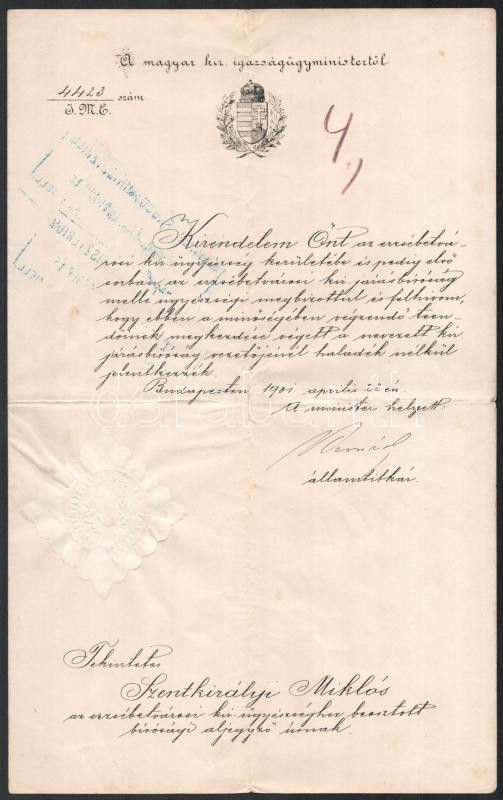 A magyar kir. igazságügyministertől
4423 szám
I.M.E.
4,
Kirendelem Önt az erzsébetvá-
rosi kir. ügyészség kerületébe és pedig első
sorban az erzsébetvárosi kir. járásbíróság
mellé ügyészségi megbizottul és felhivom,
hogy ebben a minőségében végzendő teen-
dőinek megkezdése végett a nevezett kir.
járásbíróság vezetőjénél haladék nélkül
jelentkezzék.
Budapesten 1901 április
A minister helyett:
államtitkár.
Tekintetes
Szentkirályi Miklós
az erzsébetvárosi kir. ügyészséghez beosztott
birósági aljegyző úrnak.
darabanth